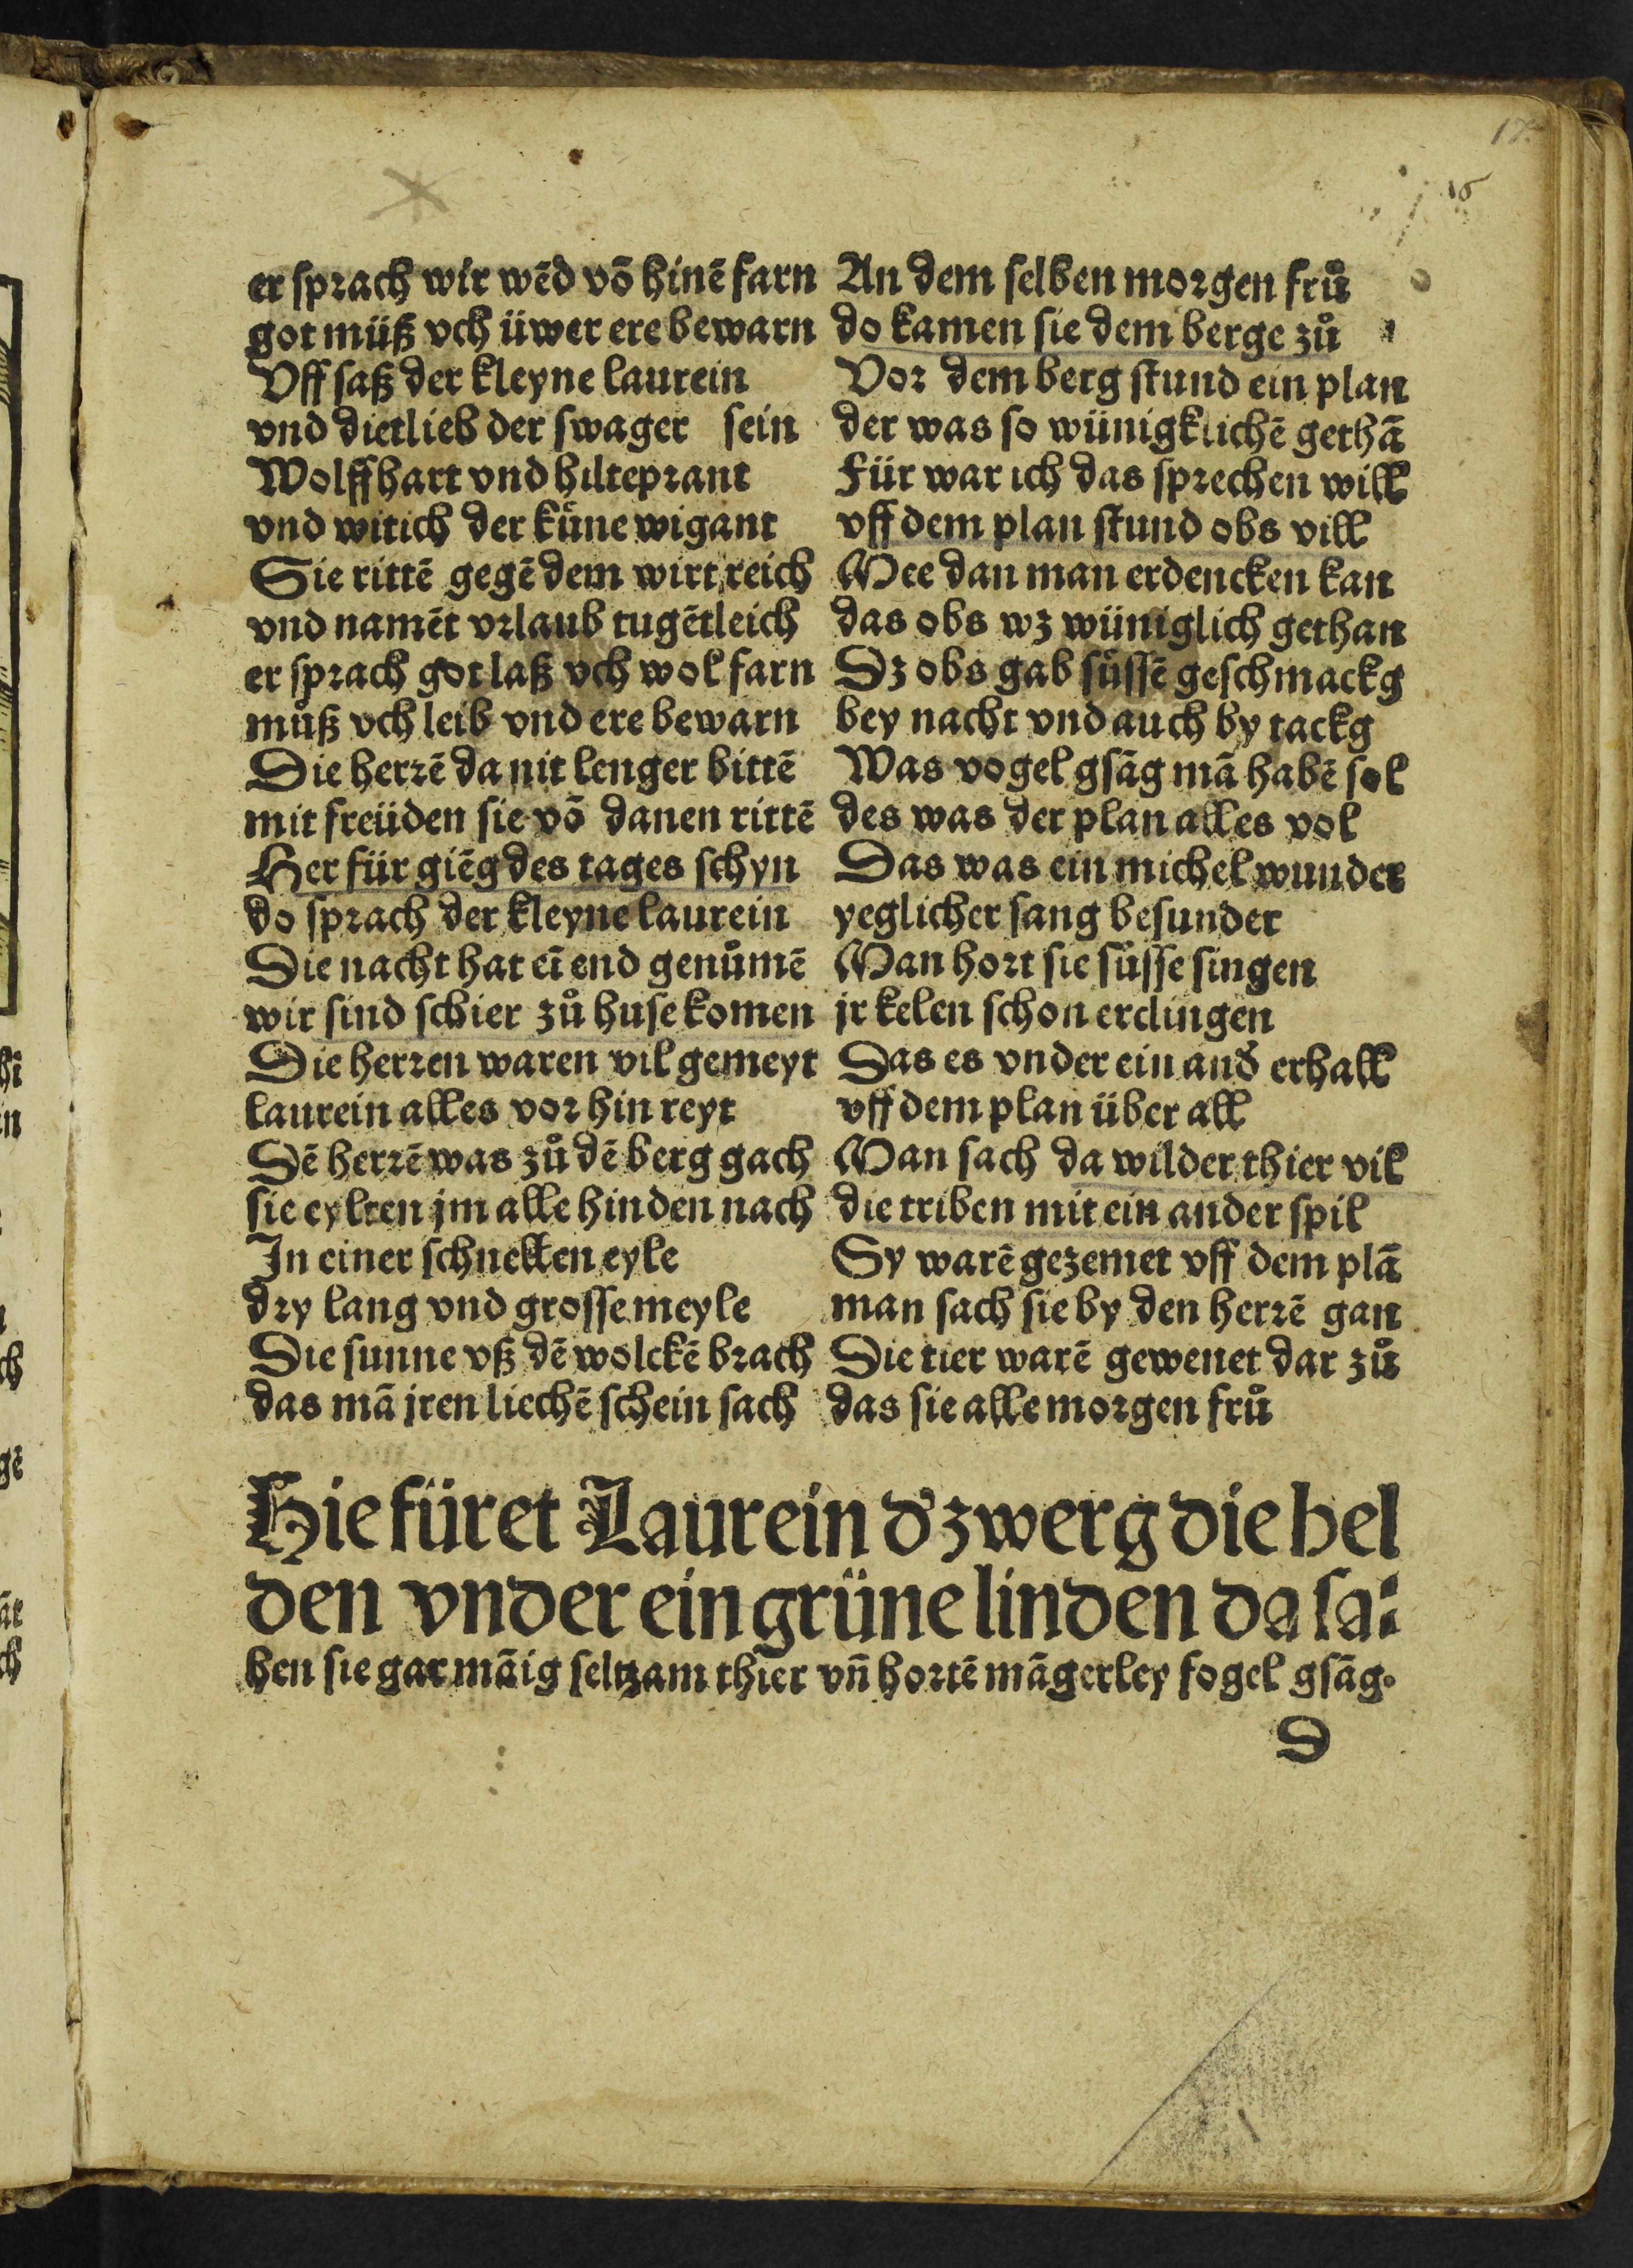 17.
16
er sprach wir wēd vō hinē farn
got müß vch üwer ere bewarn
Vff saß der kleyne laurein
vnd dietlieb der swager sein
Wolffhart vnd hilteprant
vnd witich der kůne wigant
Sie rittē gegē dem wirt reich
vnd namēt vrlaub tugētleich
er sprach got laß vch wol farn
můß vch leib vnd ere bewarn
Die herrē da nit lenger bittē
mit freüden sie vō danen rittē
Her für giēg des tages schyn
do sprach der kleyne laurein
Die nacht hat eī end genůmē
wir sind schier zů huse komen
Die herren waren vil gemeyt
laurein alles vor hin reyt
Dē herrē was zů dē berg gach
sie eylten jm alle hinden nach
In einer schnellen eyle
dry lang vnd grosse meyle
Die sunne vß dē wolckē brach
das mā jren liechē schein sach
An dem selben morgen frů
do kamen sie dem berge zů
Vor dem berg stund ein plan
der was so wünigklichē gethā
Für war ich das sprechen will
vff dem plan stund obs vill
Mee dan man erdencken kan
das obs wz wüniglich gethan
Dz obs gab sůssē geschmackg
bey nacht vnd auch by tackg
Was vogel gsāg mā habē sol
des was der plan alles vol
Das was ein michel wunder
yeglicher sang besunder
Man hort sie sůsse singen
jr kelen schon erclingen
Das es vnder ein and̄ erhall
vff dem plan über all
Man sach da wilder thier vil
die triben mit ein ander spil
Sy warē gezemet vff dem plā
man sach sie by den herrē gan
Die tier warē gewenet dar zů
das sie alle morgen frů
Hie füret Laurein d' zwerg die hel
den vnder ein grüne linden da sa⸗
hen sie gar māig seltzam thier vn̄ hortē māgerley fogel gsāg.
D